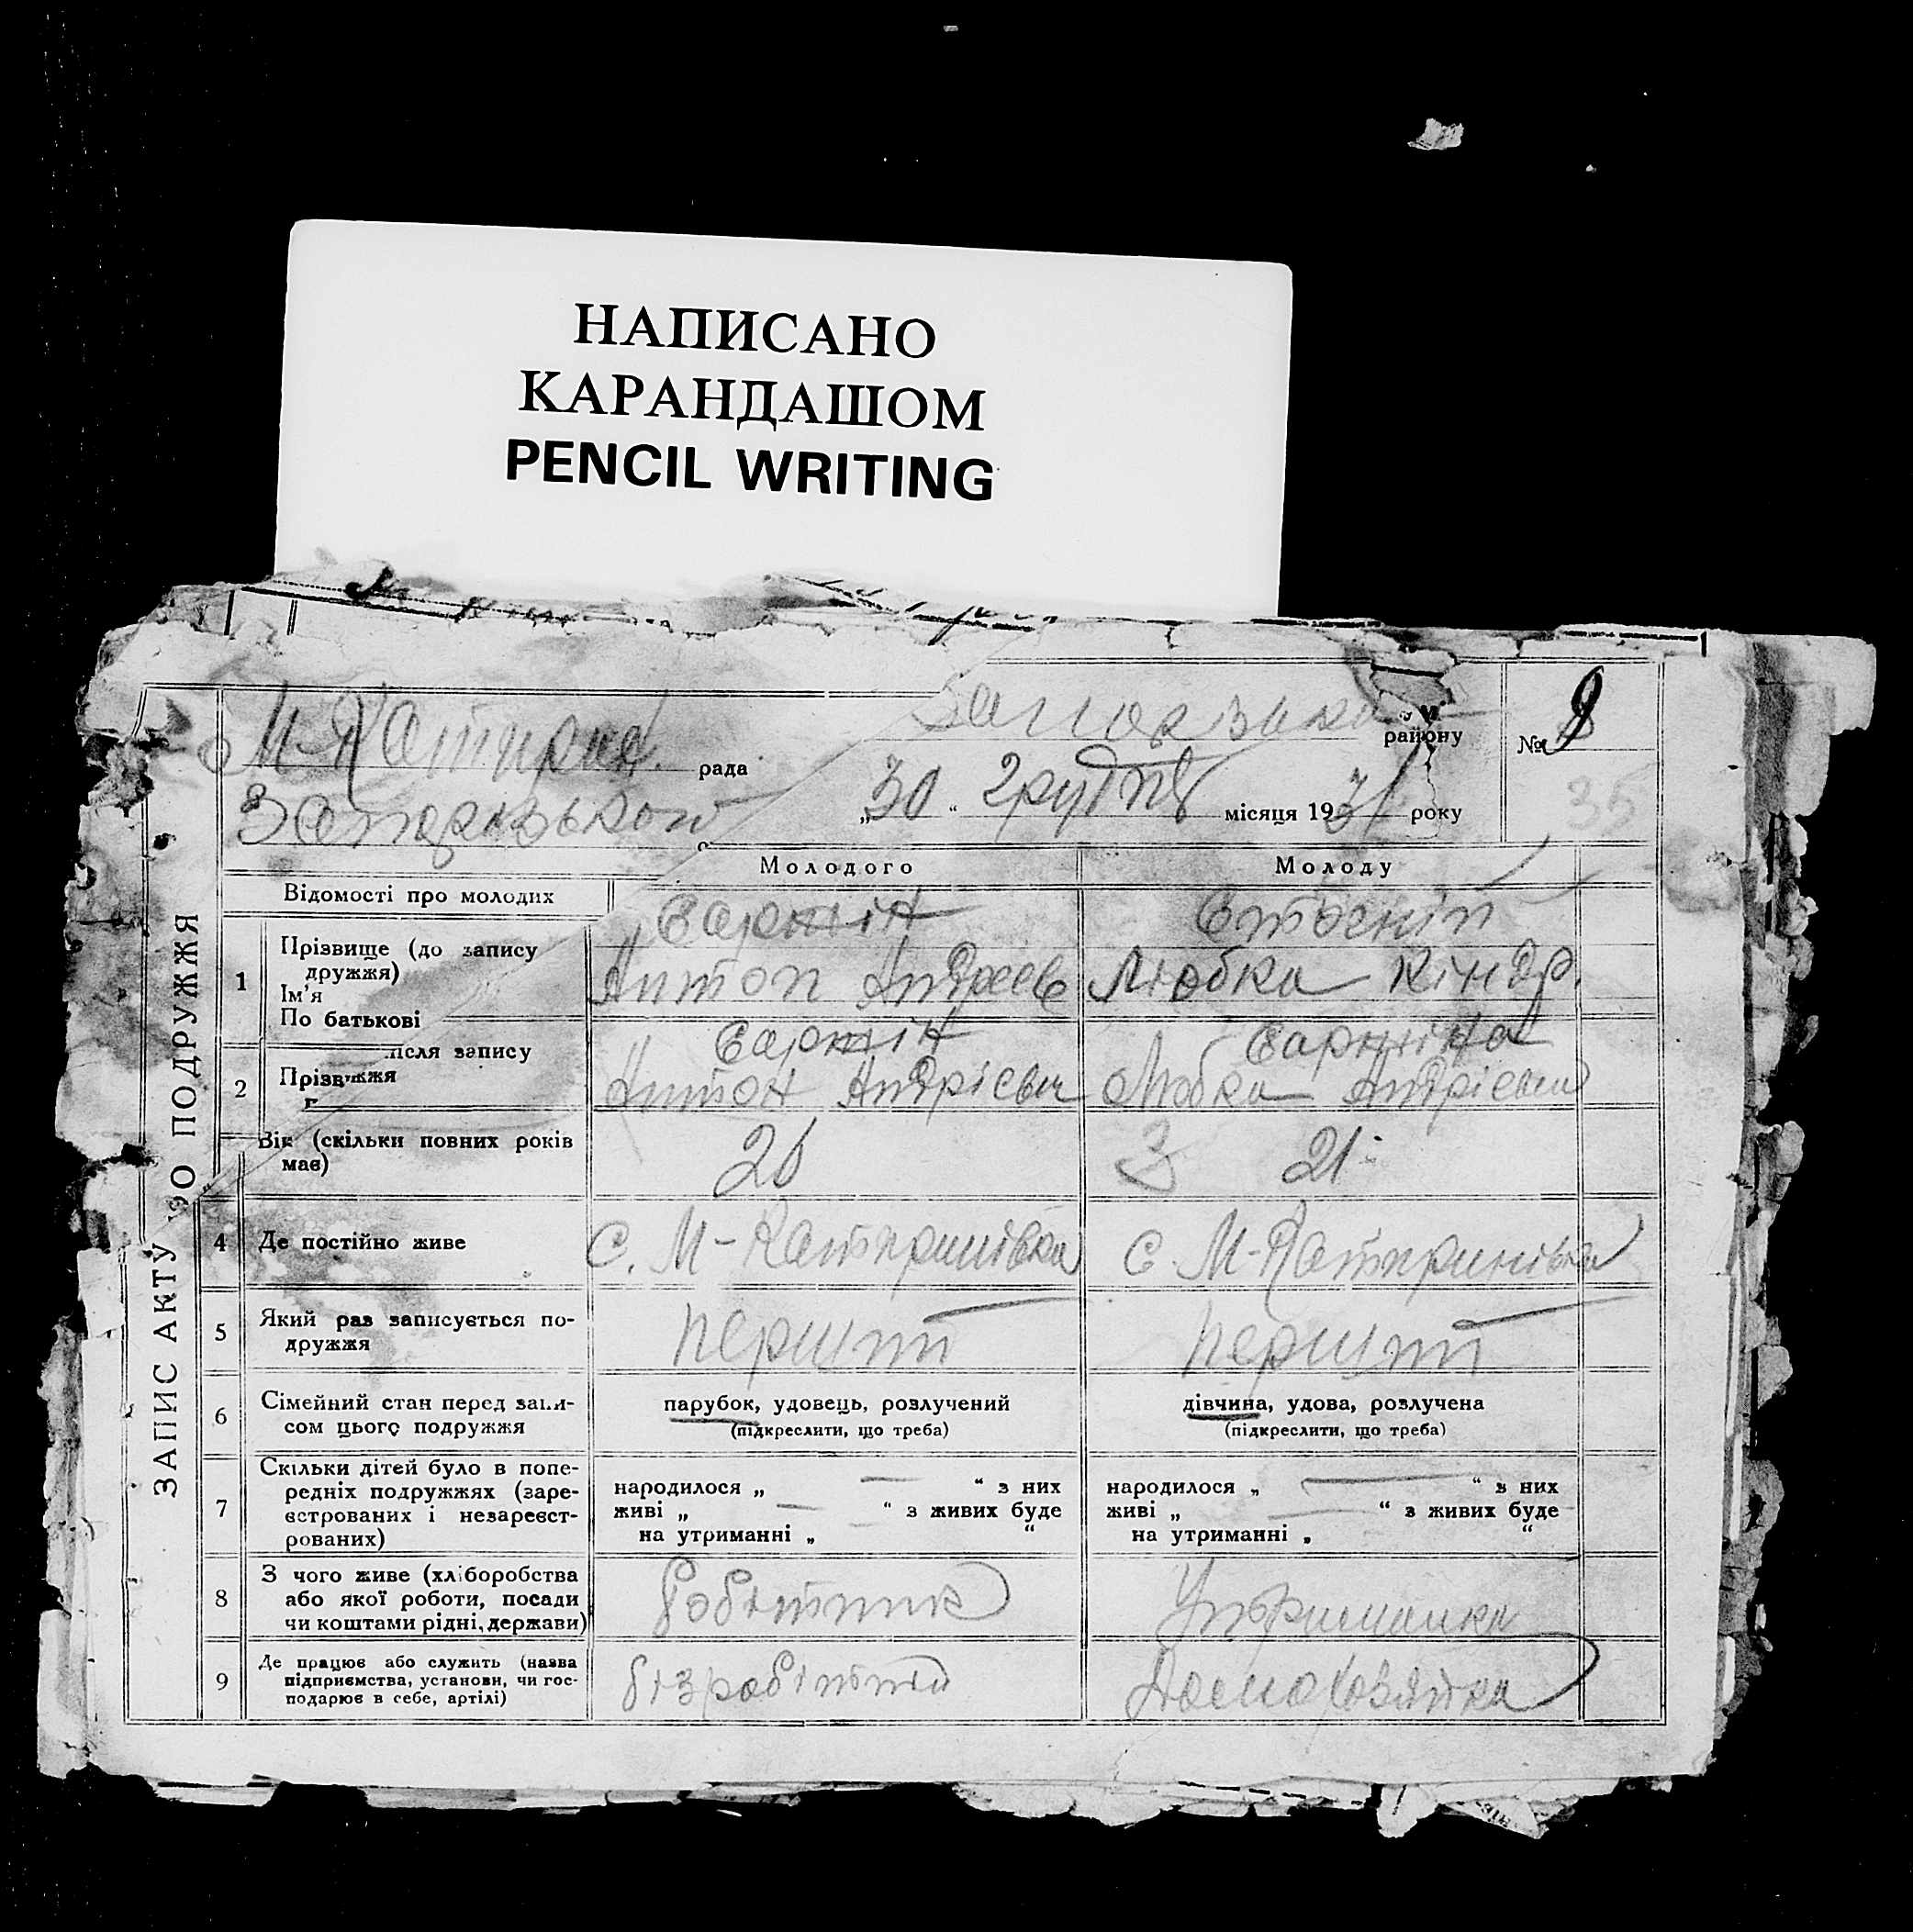 НАПИСАНО
КАРАНДАШОМ
PENCIL WRITING
ЗАПИС АКТУ ПРО ПОДРУЖЖЯ
М-Катерин. рада
району
№ 9
35
„30“ грудня місяця 1931 року
Молодого Молоду
Відомості про молодих
1 Прізвище (до запису
дружжя)
Ім’я
По батькові
Антон Андреев Любка Кіндр.
2 після запису
Антон Андрієвич Любка Андрієвна
Вік (скільки повних років
має)
26 3 21
4 Де постійно живе
с. М-Катиринівка с. М-Катиринівка
5 Який раз записується по-
дружжя
перший перший
6 Сімейний стан перед запи-
сом цього подружжя
парубок, удовець, розлучений дівчина, удова, розлучена
(підкреслити, що треба) (підкреслити, що треба)
7 Скільки дітей було в попе-
редніх подружжях (заре-
єстрованих і незареєст-
рованих)
народилося „ — “ з них народилося „ — “ з них
живі „ — “ з живих буде живі „ — “ з живих буде
на утриманні „ “ на утриманні „ “
8 З чого живе (хліборобства
або якої роботи, посади
чи коштами рідні, держави)
Робітник Утриманка
9 Де працює або служить (назва
підприємства, установи, чи гос-
подарює в себе, артілі)
безробітний Домохозяйка